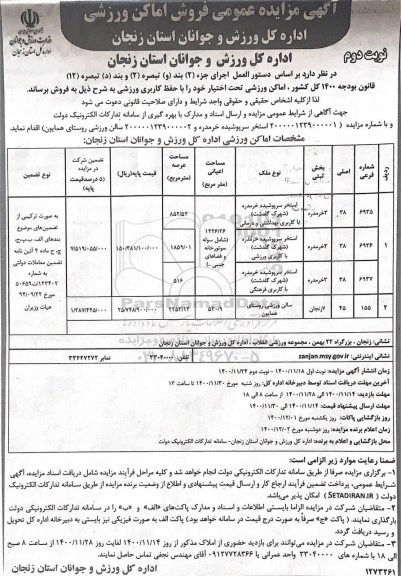 آگهی مزایده عمومی فروش اماکن ورزشی
اداره کل ورزش و جوانان استان زنجان
نوبت دوم
اداره کل ورزش و جوانان استان زنجان
وزارت ورزش و جوانان
اداره کل استان زنجان
در نظر دارد بر اساس دستور العمل اجرای جزء (۲) بند (و) تبصره (۲) و بند (د) تبصره (۱۲)
قانون بودجه ۱۴۰۰ کل کشور ، اماکن ورزشی تحت اختیار خود را با حفظ کاربری ورزشی به شرح ذیل به فروش برساند.
لذا از کلیه اشخاص حقیقی و حقوقی واجد شرایط و دارای صلاحیت قانونی دعوت می شود
جهت آگاهی از شرایط عمومی مزایده و ارسال اسناد و مدارک با بهره گیری از سامانه تدارکات الکترونیک دولت
و با شماره مزایده (۲۰۰۰۰۰۱۳۳۹۰۰۰۰۰۱ استخر سرپوشیده خرمدره و ۲۰۰۰۰۰۱۳۳۹۰۰۰۰۰۲ سالن ورزشی روستای همایون) اقدام نماید.
مشخصات اماکن ورزشی اداره کل ورزش و جوانان استان زنجان:
ردیف شماره فرعی اصلی بخش ثبتی نوع ملک مساحت اعیانی (متر مربع) مساحت عرصه (مترمربع) قیمت پایه(ریال) تضمین شرکت در مزایده (۵ درصدقیمت پایه) نوع تضمین
۱ ۶۹۳۵ ۳۸ ۲خرمدره استخر سرپوشیده خرمدره (شهرک گلدشت) با کاربری بهداشتی و درمانی ۸۵۲/۵۲
۶۹۳۶ ۳۸ ۲خرمدره استخر سرپوشیده خرمدره (شهرک گلدشت) با کاربری ورزشی ۱۴۲۶/۲۶ (شامل سوله موتورخانه و فضاهای جنبی) ۱۸۵۹/۰۱ ۱۵۰/۳۸۱/۱۰۰/۰۰۰ ۷/۵۱۹/۰۵۵/۰۰۰
۶۹۳۷ ۳۸ ۲خرمدره استخر سرپوشیده خرمدره (شهرک گلدشت) با کاربری فرهنگی ۵۱۶
۲ ۱۵۵ ۴۵ ۷زنجان سالن ورزشی روستای همایون ۵۲۰/۹ ۲۲۵۳/۱۳ ۲۵/۷۴۸/۹۰۰/۰۰۰ ۱/۲۸۷/۴۴۵/۰۰۰
به صورت ترکیبی از تضمین‌های موضوع بندهای الف، ب،پ، ج،ح ماده ۴ آئین نامه تضمین معاملات دولتی به شماره ۱۲۳۴۰۲/ت۵۰۶۵۹ه مورخ ۹۴/۰۹/۲۲ هیات وزیران
نشانی: زنجان ، بزرگراه ۲۲ بهمن ، مجموعه ورزشی انقلاب ، اداره کل ورزش و جوانان استان زنجان
نشانی اینترنتی: zanjan.msy.gov.ir تلفن: ۳۳۰۴۰۰۰۰ نمابر: ۳۳۴۴۷۲۷۲
زمان انتشار آگهی مزایده: نوبت اول ۱۴۰۰/۱۱/۱۸ - نوبت دوم ۱۴۰۰/۱۱/۲۴
آخرین مهلت دریافت اسناد توسط دبیرخانه اداره کل: روز شنبه مورخ ۱۴۰۰/۱۱/۳۰ تا ساعت ۱۳
مهلت بازدید: ۱۴۰۰/۱۱/۱۴ الی ۱۴۰۰/۱۱/۲۸ از ساعت ۸ الی ۱۸
مهلت ارسال پیشنهاد قیمت: ۱۴۰۰/۱۱/۱۴ الی ۱۴۰۰/۱۱/۳۰
زمان بازگشایی پاکات: روز یکشنبه مورخ ۱۴۰۰/۱۲/۰۱
زمان اعلام برنده مزایده: روز دوشنبه مورخ ۱۴۰۰/۱۲/۰۲
محل بازگشایی و اعلام به برنده: اداره کل ورزش و جوانان استان زنجان- سامانه تدارکات الکترونیک دولت
ضمنا رعایت موارد زیر الزامی است:
۱- برگزاری مزایده صرفا از طریق سامانه تدارکات الکترونیکی دولت انجام خواهد شد و کلیه مراحل فرآیند مزایده شامل دریافت اسناد مزایده، آگهی
شرایط عمومی، پرداخت تضمین فرآیند ارجاع کار و ارسال قیمت پیشنهادی و اطلاع از وضعیت برنده مزایده از طریق سامانه تدارکات الکترونیک
دولت (SETADIRAN.IR) امکان پذیر می‌باشد.
۲- متقاضیان شرکت در مزایده الزاما بایستی اطلاعات و اسناد و مدارک پاکت‌های «الف» و «ب» را در سامانه تدارکات الکترونیکی دولت
بارگذاری نمایند. ( پاکت «ج» صرفاً به صورت درج قیمت در سامانه خواهد بود.) پاکت الف به صورت فیزیکی نیز بایستی به دبیرخانه اداره کل تحویل
و رسید دریافت گردد.
۳- متقاضیان شرکت در مزایده می‌توانند برای بازدید حضوری از املاک مذکور از روز ۱۴۰۰/۱۱/۱۴ لغایت روز ۱۴۰۰/۱۱/۲۸ از ساعت ۸ صبح
الی ۱۸ با شماره های ۳۳۰۴۰۰۰۰ واحد عمرانی یا ۰۹۱۲۷۷۲۸۳۶۶ آقای مهندس نجفی تماس حاصل نمایند.
اداره کل ورزش و جوانان استان زنجان
۱۲۷۳۲۶۱